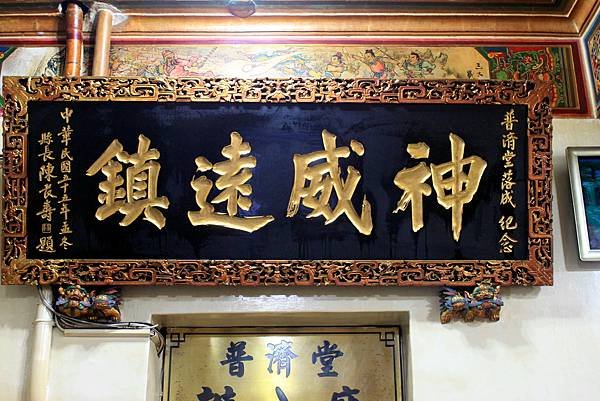 普濟堂落成 紀念
神威遠鎮
中華民國五十五年孟冬
縣長陳長壽題
普濟堂